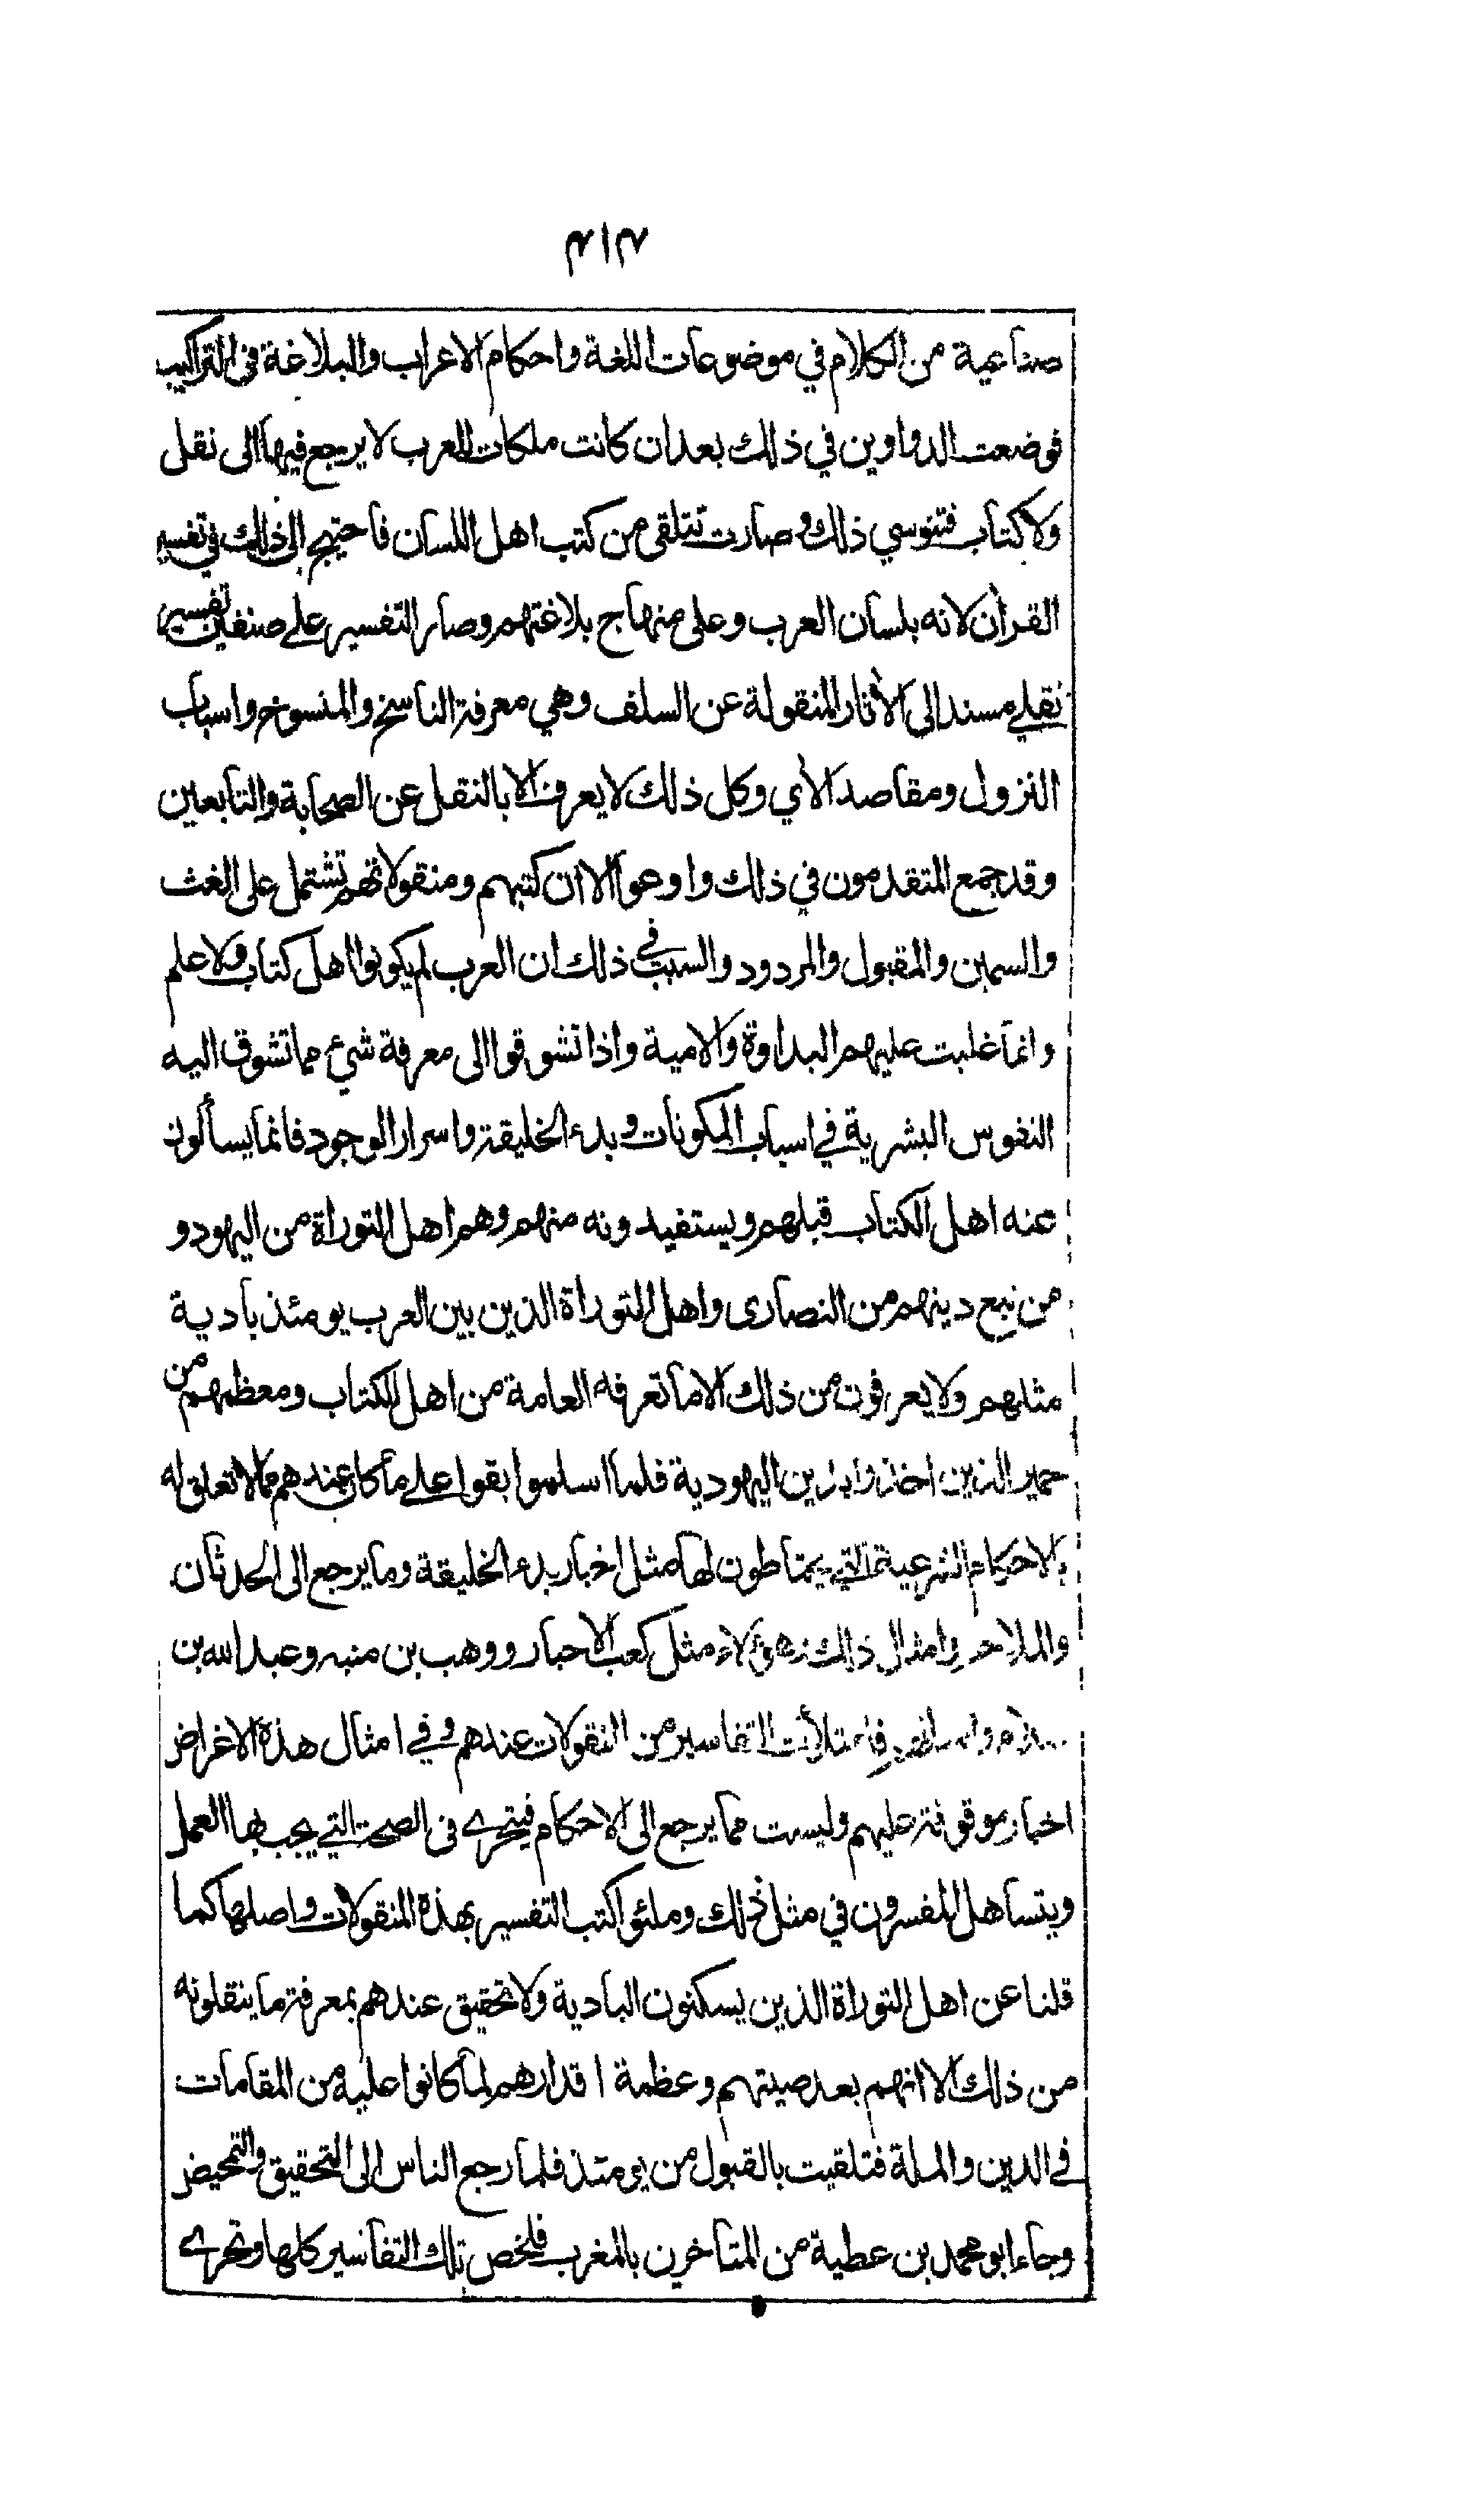 ٣١٣
صناعية من الكلام في موضوعات اللغة واحكام الاعراب والبلاغة في التراكيب
فوضعت الدواوين في ذلك بعد ان كانت ملكات للعرب لا يرجع فيها الى نقل
ولا كتاب فتنوسي ذلك وصارت تتلقى من كتب اهل اللسان فاحتيج الى ذلك في تفسير
القرأن لانه بلسان العرب وعلى منهاج بلاغتهم وصار التفسير على صنفين تفسير
نقلي مسند الى الأثار المنقولة عن السلف وهي معرفة الناسخ والمنسوخ واسباب
النزول ومقاصد الأي وكل ذلك لا يعرف الا بالنقل عن الصحابة والتابعين
وقد جمع المتقدمون في ذلك واوعوا الا ان كتبهم ومنقولاتهم تشتمل على الغث
والسمين والمقبول والمردود والسبب في ذلك ان العرب لم يكونوا اهل كتاب ولا علم
وانما غلبت عليهم البداوة والامية واذا تشوقوا الى معرفة شيء مما تشوق اليه
النفوس البشرية في اسباب المكونات وبدء الخليقة واسرار الوجود فانما يسألون
عنه اهل الكتاب قبلهم ويستفيدونه منهم وهم اهل التوراة من اليهود و
من تبع دينهم من النصارى واهل التوراة الذين بين العرب يومئذ بادية
مثلهم ولا يعرفون من ذلك الا ما تعرفه العامة من اهل الكتاب ومعظمهم من
حمير الذين اخذوا بدين اليهودية فلما اسلموا بقوا على ما كان عندهم مما لا تعلق له
بالاحكام الشرعية التي يحتاطون لها مثل اخبار بدء الخليقة وما يرجع الى الحدثان
والملاحم وامثال ذلك وهؤلاء مثل كعب الاحبار ووهب بن منبه وعبد الله بن
سلام وامثالهم فامتلأت التفاسير من النقولات عندهم وفي امثال هذه الاغراض
اخبار موقوفة عليهم وليست مما يرجع الى الاحكام فيتحرى في الصحة التي يجب بها العمل
ويتساهل المفسرون في مثل ذلك وملئوا كتب التفسير بهذه المنقولات واصلها كما
قلنا عن اهل التوراة الذين يسكنون البادية ولا تحقيق عندهم بمعرفة ما ينقلونه
من ذلك الا انهم بعد صيتهم وعظمة اقدارهم لما كانوا عليه من المقامات
في الدين والملة فتلقيت بالقبول من يومئذ فلما رجع الناس الى التحقيق والتمحيض
وجاء ابو محمد بن عطية من المتأخرين بالمغرب فلخص تلك التفاسير كلها وتحرى